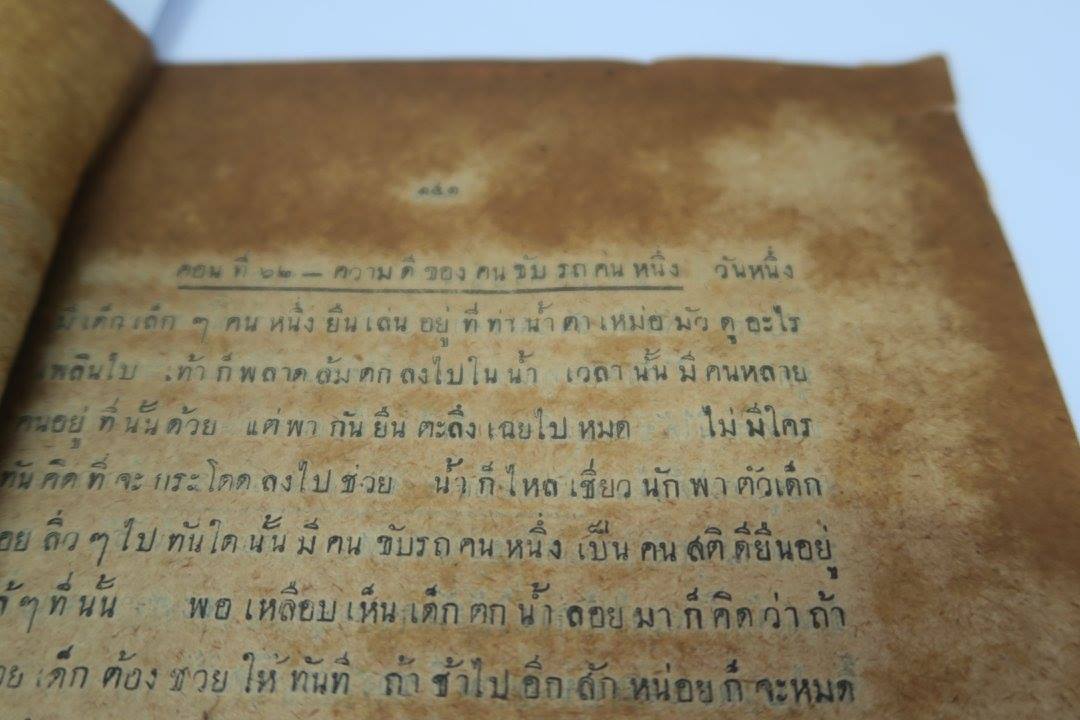 ๑๕๑
ตอนที่ ๖๒ — ความดีของคนขับรถคนหนึ่ง วันหนึ่ง
มีเด็กเล็ก ๆ คนหนึ่งยืนเล่นอยู่ที่ท่าน้ำตาเหม่อมัวดูอะไร
เพลินไป เท้าก็พลาดล้มตกลงไปในน้ำ เวลานั้นมีคนหลาย
คนอยู่ที่นั้นด้วย แต่พากันยืนตะลึงเฉยไปหมด ไม่มีใคร
ทันคิดที่จะกระโดดลงไปช่วย น้ำก็ไหลเชี่ยวนักพาตัวเด็ก
ลอยลิ่วๆไป ทันใดนั้นมีคนขับรถคนหนึ่งเป็นคนสติดียืนอยู่
ใกล้ๆที่นั้น พอเหลือบเห็นเด็กตกน้ำลอยมาก็คิดว่าถ้า
เด็กต้องช่วยให้ทันที ถ้าช้าไปอีกสักหน่อยก็จะหมด